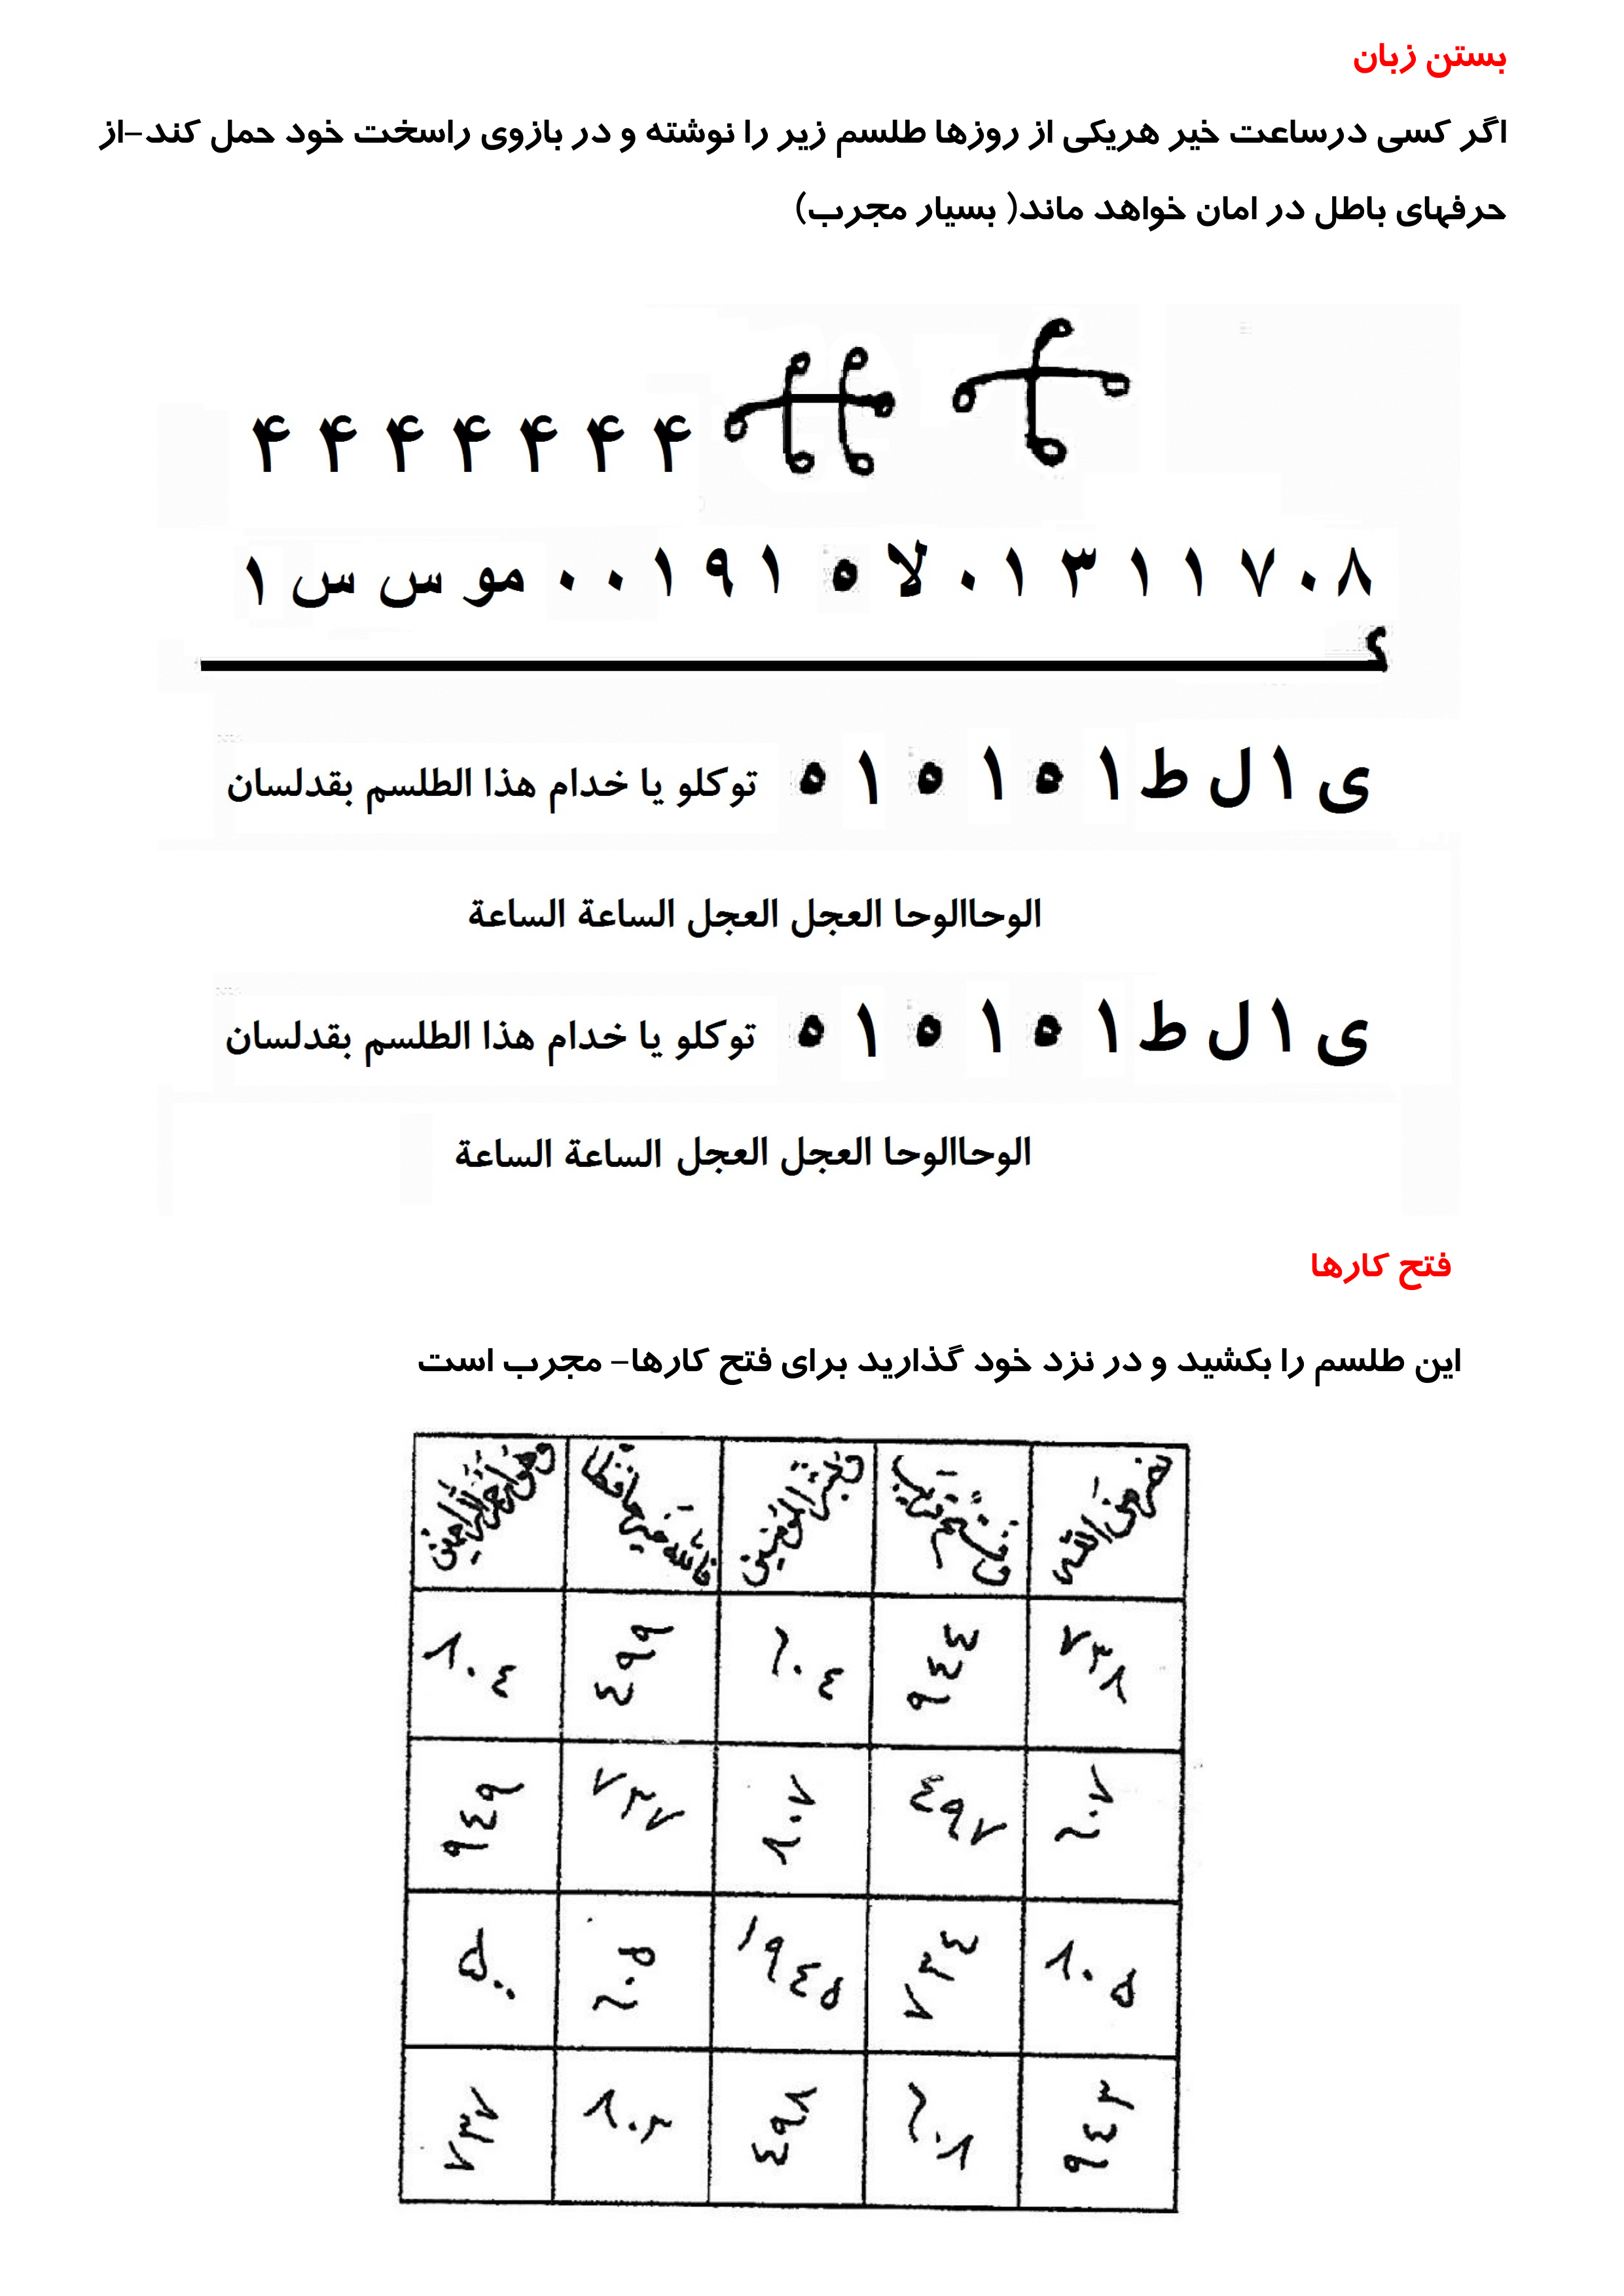 بستن زبان
اگر کسی درساعت خیر هریکی از روزها طلسم زیر را نوشته و در بازوی راسخت خود حمل کند-از
حرفهای باطل در امان خواهد ماند( بسیار مجرب)
۴ ۴ ۴ ۴ ۴ ۴ ۴
۸ ۰ ۷ ۱ ۱ ۳ ۱ ۰ لا ه ۱ ۹ ۱ ۰ ۰ مو س س ۱
ی ۱ ل ط ۱ ه ۱ ه ۱ ه توکلو یا خدام هذا الطلسم بقدلسان
الوحاالوحا العجل العجل الساعة الساعة
ی ۱ ل ط ۱ ه ۱ ه ۱ ه توکلو یا خدام هذا الطلسم بقدلسان
الوحاالوحا العجل العجل الساعة الساعة
فتح کارها
این طلسم را بکشید و در نزد خود گذارید برای فتح کارها- مجرب است
نصر من الله وفتح قریب وبشر المؤمنین فالله خیر حافظا وهو ارحم الراحمین
٧٣٨ ٩٤٤ ٦٠٤ ٤٩٩ ٨٠٤
٦٠٧ ٤٩٧ ٨٠٧ ٧٣٧ ٩٤٩
٨٠٥ ٧٣٤ ١٩٤٥ ٦٠٥ ٥٠٠
٩٤٣ ٦٠٨ ٤٩٨ ٨٠٣ ٧٣٧